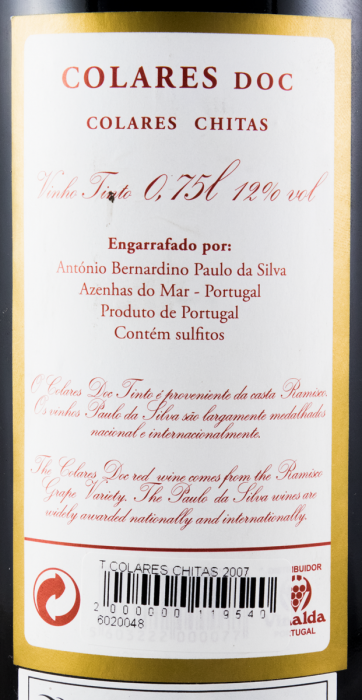 COLARES DOC
COLARES CHITAS
Vinho Tinto 0,75l 12% vol
Engarrafado por:
António Bernardino Paulo da Silva
Azenhas do Mar - Portugal
Produto de Portugal
Contém sulfitos
O Colares Doc Tinto é proveniente da casta Ramisco.
Os vinhos Paulo da Silva são largamente medalhados
nacional e internacionalmente.
The Colares Doc red wine comes from the Ramisco
Grape Variety. The Paulo da Silva wines are
widely awarded nationally and internationally.
T.COLARES CHITAS 2007
2 000000 119540
6020048